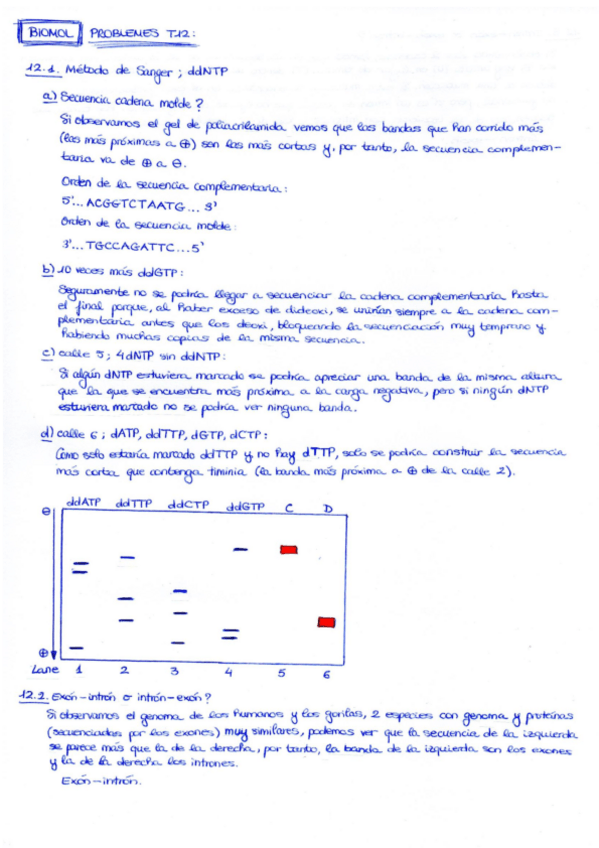 BIOMOL PROBLEMES T.12:
12.1. Método de Sanger; ddNTP
a) Secuencia cadena molde?
Si observamos el gel de poliacrilamida vemos que las bandas que han corrido más
(las más próximas a ⊕) son las más cortas y, por tanto, la secuencia complemen-
taria va de ⊕ a ⊖.
Orden de la secuencia complementaria:
5'...ACGGTCTAATG...3'
Orden de la secuencia molde:
3'...TGCCAGATTC...5'
b) 10 veces más ddGTP:
Seguramente no se podría llegar a secuenciar la cadena complementaria hasta
el final porque, al haber exceso de dideoxi, se unirían siempre a la cadena com-
plementaria antes que los deoxi, bloqueando la secuenciación muy temprano y
habiendo muchas copias de la misma secuencia.
c) calle 5; 4dNTP sin ddNTP:
Si algún dNTP estuviera marcado se podría apreciar una banda de la misma altura
que la que se encuentra más próxima a la carga negativa, pero si ningún dNTP
estuviera marcado no se podría ver ninguna banda.
d) calle 6; dATP, ddTTP, dGTP, dCTP:
Como solo estaría marcado ddTTP y no hay dTTP, solo se podría construir la secuencia
más corta que contenga timinia (la banda más próxima a ⊕ de la calle 2).
ddATP ddTTP ddCTP ddGTP C D
⊖
⊕
Lane 1 2 3 4 5 6
12.2. Exón-intrón o intrón-exón?
Si observamos el genoma de los humanos y los gorilas, 2 especies con genoma y proteínas
(secuenciadas por los exones) muy similares, podemos ver que la secuencia de la izquierda
se parece más que la de la derecha, por tanto, la banda de la izquierda son los exones
y la de la derecha los intrones.
Exón-intrón.